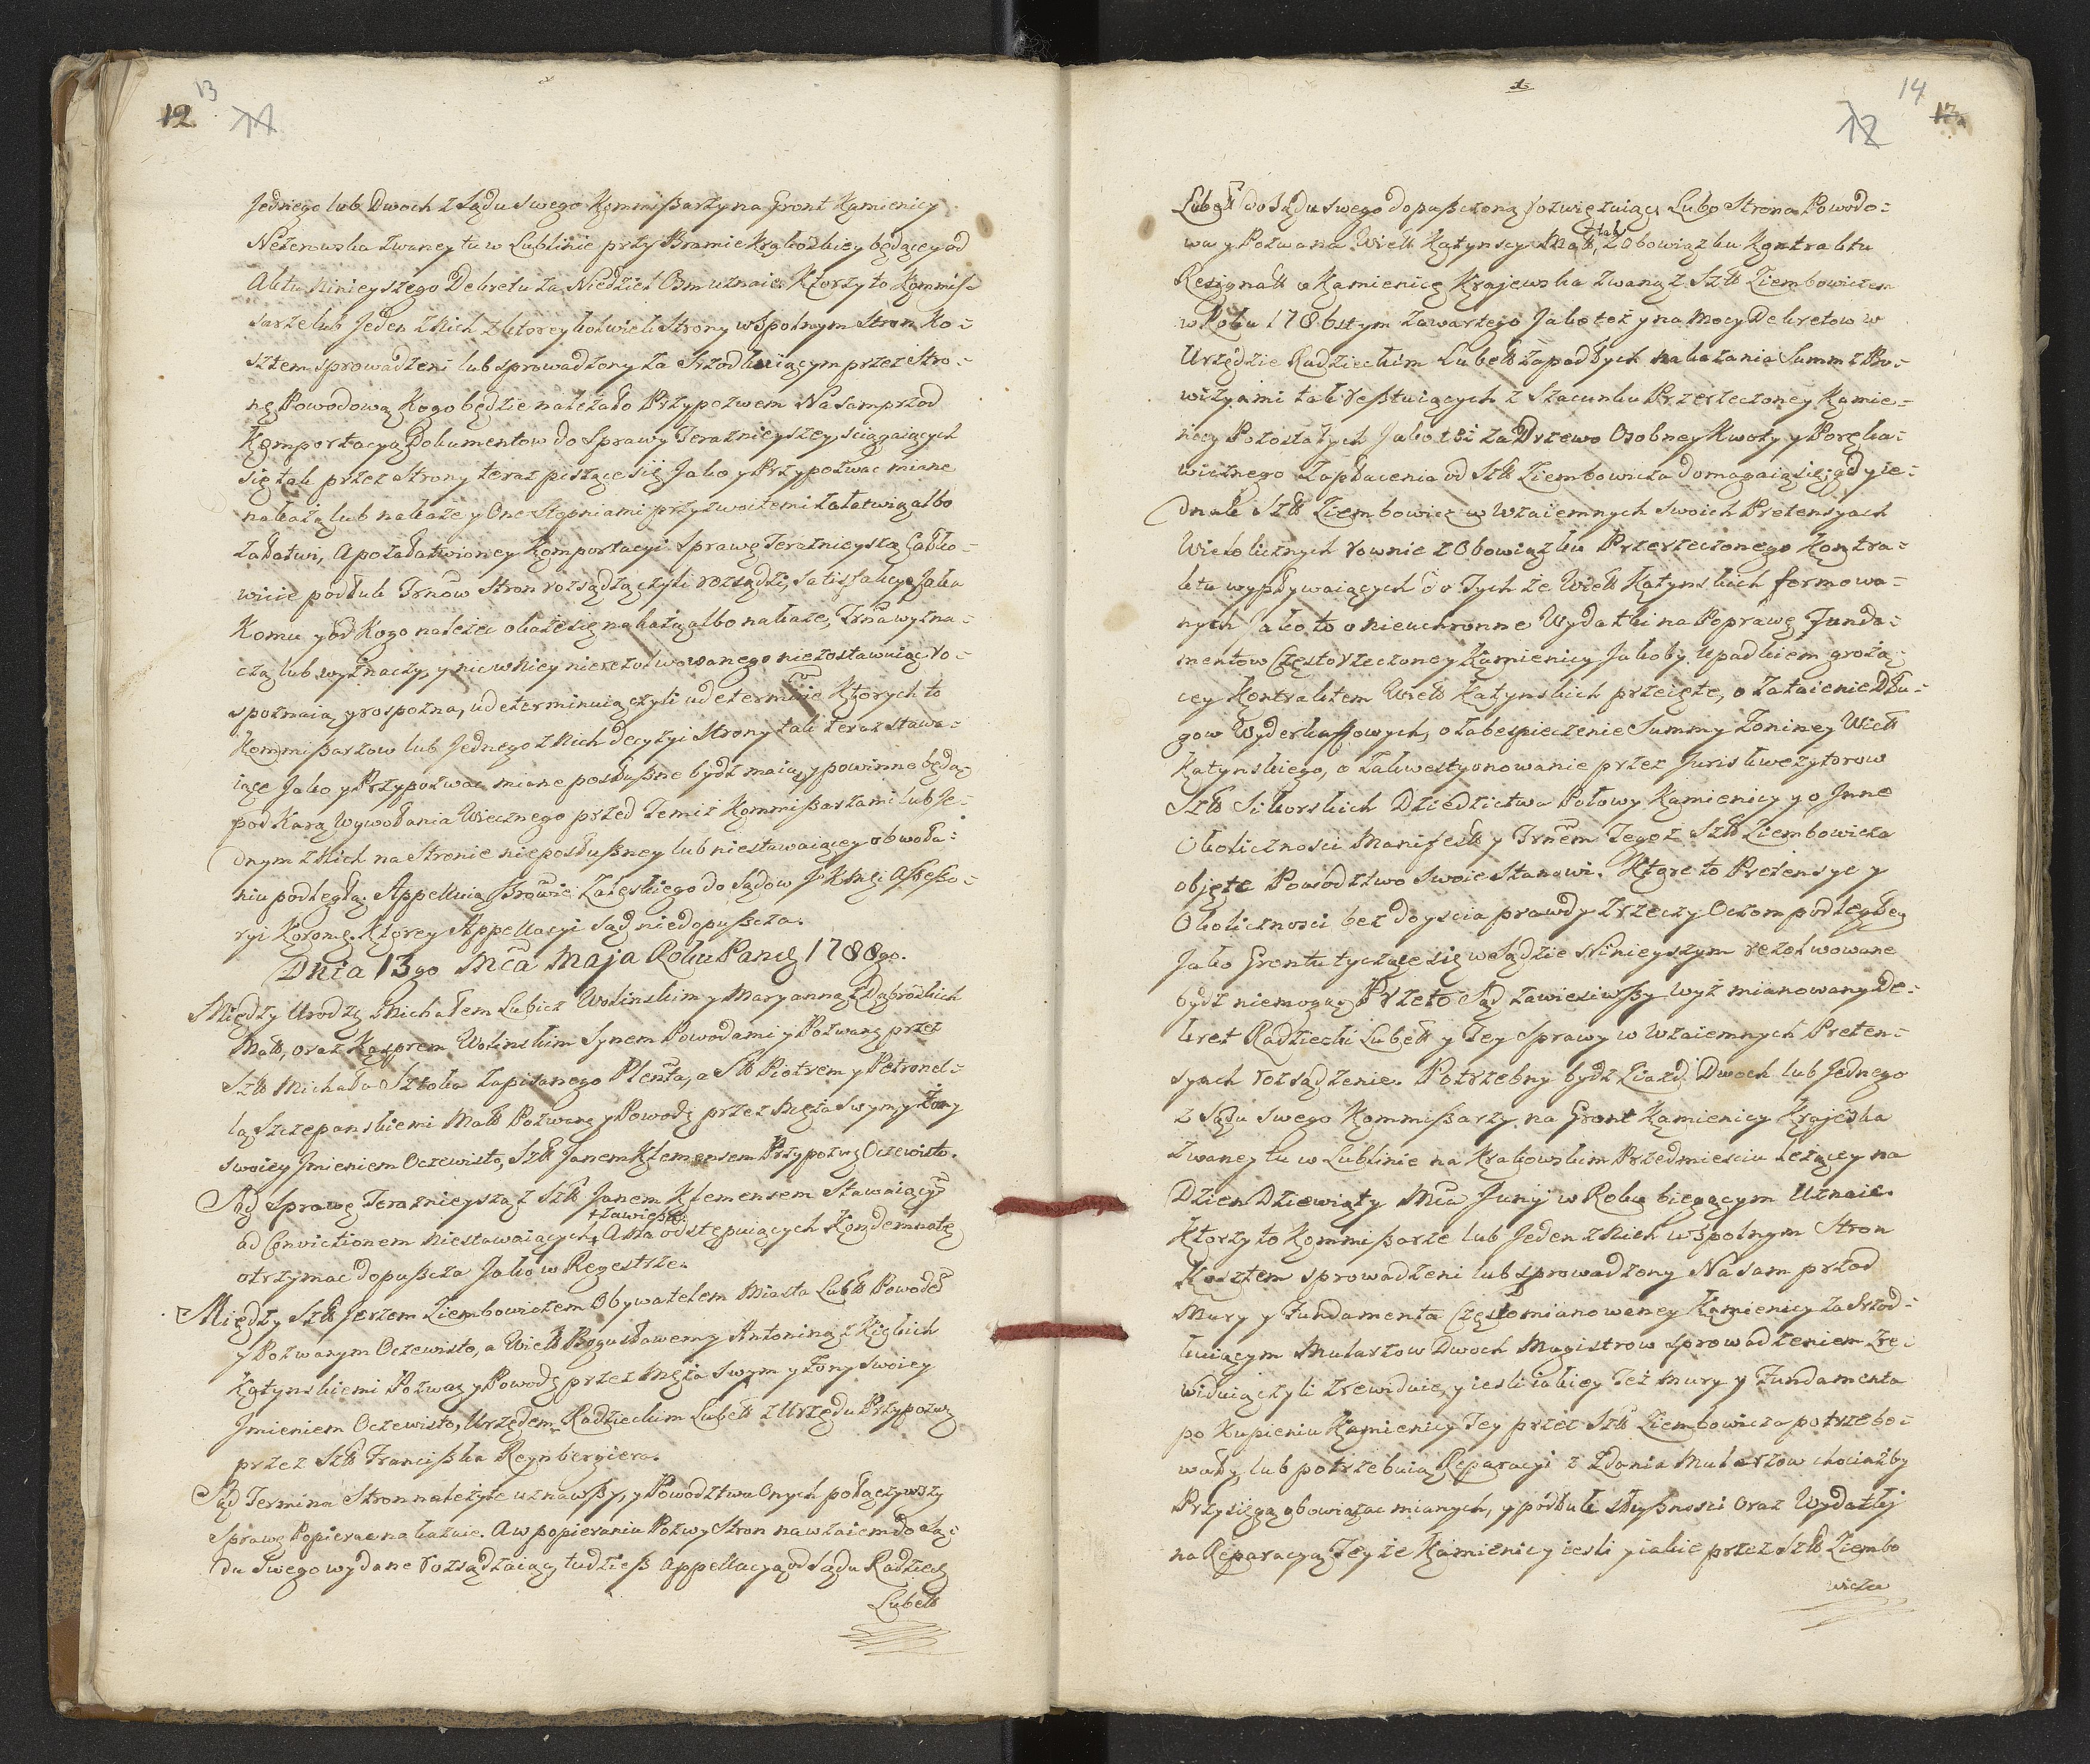 12 13 11
Jednego lub Dwoch z Sądu swego Kommißarzy na Gront Kamienicy
Nezerowska zwaney tu w Lublinie przy Bramie Krakowskiey będącey od
Aktu ninieyszego Dekretu za Niedziel Osm uznaie. Ktorzy to Kommis-
sarze lub Jeden z Nich z ktoreykolwiek Strony wspolnym Stron Ko-
sztem sprowadzeni lub sprowadzony za Srzodkuiącym przez Stro-
nę Powodową Kogo będzie należało Przypozwem Na samprzod
Komportacyą Dokumentow do Sprawy Teraznieyszey, sciągaiących
się tak przez Strony teraz piszące się Jako y Przypozwać miane
nakażą lub nakaże y One Stopniami przyzwoitemi załatwią albo
załatwi, A po załatwioney Komportacyi Sprawę Teraznieyszą Całko-
wicie podług Trnow Stron rozsądzą czyli rozsądzi, Satisfakcyą Jaka
Komu y od Kogo należeć okaże się nakażą albo nakaże, Trna wyzna-
czą lub wyznaczy, y nic w Niey nierezolwowanego niezostawuiąc ro-
spoznaią y rospozna, udeterminuią czyli udeterminie Ktorych to
Kommißarzow lub Jednego z Nich decyzyi Strony tak teraz stawa-
iące Jako y Przypozwać miane posłußne bydź maią, y powinne będą
pod Karą Wywołania Wiecznego przed Temiż Kommißarzami lub Je-
dnym z Nich na Stronie nieposłußney lub niestawaiącey obwoła-
niu podległą. Appelluią Browie Zaleskiego do Sądow JKMci Assesso-
ryi Koronę. Ktorey Appellacyi Sąd niedopußcza.
Dnia 13go Mca Maja Roku Panę 1788go.
Między Urodzę Michałem Lubicz Wolinskim y Maryanną z Dąbrodzkich
Małł, oraz Kasprem Wolinskim Synem Powodami y Pozwanę przez
Szł Michała Sztoka Zapisanego Plenta, a Sł Piotrem y Petronel-
lą Szczepanskiemi Małł Pozwanę y Powodę przez Męża swym y Żony
swoiey Jmieniem Oczewisto, Szł Janem Klemensem Przypozwę Oczewisto.
Sąd Sprawę Teraznieyszą z Szł Janem Klemensem Stawaiącym
+ zawiesza.
ad Convictionem niestawaiących + A Na odstępuiących Kondemnatę
otrzymać dopußcza Jako w Regestrze.
Między Szł Jerzem Ziembowiczem Obywatelem Miasta Lubł Powodem
y Pozwanym Oczewisto, a Wielł Bogusławem y Antoniną z Kiglich
Kątynskiemi Pozwaę y Powodę przez Męża swym y Żony swoiey
Jmieniem Oczewisto, Urzędem Radzieckim Lubelł z Urzędu Przypozwę
przez Szł Francißka Reynbergiera.
Sąd Termina Stron należyte uznawßy, y Powodztwa Onych połączywszy
Sprawę Popierać nakazuie. A w popieraniu Pozwy Stron nawzaiem do Są-
du Swego wydane rozsądzaiąc, tudzieß Appellacyą od Sądu Radzieę
Lubelł
14 12 13
Lubelł do Sądu swego dopußczoną rozwięzuiąc, Lubo Strona Powodo-
wa y Pozwana Wielł Kątynscy Małł, +tak z Obowiązku Kontraktu
Resignałł o Kamienicę Krajewska zwaną z Szł Ziembowiczem
w Roku 1786stym zawartego Jako też y na Mocy Dekretow w
Urzędzie Radzieckim Lubelł zapadłych nakazania Summ z Pro-
wizyami tak restuiących z Szacunku Przerzeczoney Kamie-
nicy Pozostałych Jako też za Drzewo Osobney Kwoty y Poręka-
wicznego Zapłacenia od Szł Ziembowicza domagaią się; gdy ie-
dnak Szł Ziembowicz w Wzaiemnych swoich Pretensyach
Wielolicznych rownie z Obowiązku Przerzeczonego Kontra-
ktu wypływaiących do Tych że Wielł Kątynskich formowa-
nych Jako to o nieuchronne Wydatki na Poprawę Funda-
mentow Często rzeczoney Kamienicy Jakoby upadkiem grożą-
cey Kontraktem Wielł Katynskich przeięte, o Zataienie Dłu-
gow Wyderkaffowych, o zabespieczenie Summy Zoniney Wielł
Kątynskiego, o Zakwestyonowanie przez Juris kwezytorow
Szł Sikorskich Dziedzictwa Połowy Kamienicy y o Inne
Okoliczności Manifestł y Trnem Tegoż Szł Ziembowicza
obięte Powodztwo Swoie Stanowi. Ktore to Pretensye y
Okoliczności bez doyscia prawdy z rzeczy Oczom podległey
Jako Grontu tyczące się w Sądzie Ninieyszym rezolwowane
bydź niemogą. Przeto Sąd zawiesiwßy wyż mianowany De-
kret Radziecki Lubelł y Tey Sprawy w Wzaiemnych Preten-
syach rozsądzenie. Potrzebny bydź Ziazd Dwoch lub Jednego
z Sądu Swego Kommißarzy na Gront Kamienicy Krajeska
Zwaney tu w Lublinie na Krakowskim Przedmiesciu leżącey na
Dzien Dziewiąty Mca Junij w Roku biegącym Uznaie.
Ktorzy to Kommißarze lub Jeden z Nich wspolnym Stron
Kosztem sprowadzeni lub sprowadzony Na sam przod
Mury y Fundamenta Często mianowaney Kamienicy za Srzod-
kuiącym Mularzow Dwoch Magistrow sprowadzeniem Zre-
widuią czyli Zrewiduie, y iesli iakiey Też Mury y Fundamenta
po Kupieniu Kamienicy Tey przez Szł Ziembowicza potrzebo-
wały, lub potrzebuią Reparacyi z Zdania Mularzow chociażby
Przysięgą obowiązać mianych, y podług słußnosci Oraz Wydatki
na Reparacyą Teyże Kamienicy iesli y iakie przez Szł Ziembo
wicza